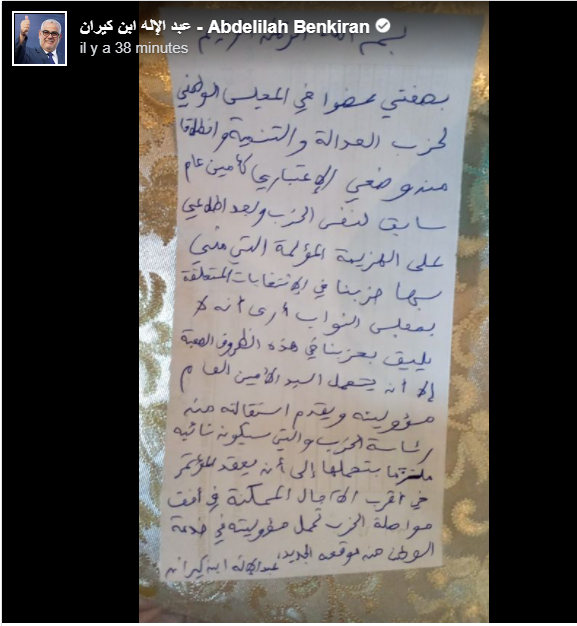 عبد الإله ابن كيران - Abdelilah Benkiran
il y a 38 minutes
بسم الله الرحمن الرحيم
بصفتي عضوا في المجلس الوطني
لحزب العدالة والتنمية وانطلاقا
من وضعي الإعتباري كأمين عام
سابق لنفس الحزب وبعد اطلاعي
على الهزيمة المؤلمة التي مني
بها حزبنا في الانتخابات المتعلقة
بمجلس النواب أرى أنه لا
يليق بحزبنا في هذه الظروف الصعبة
إلا أن يتحمل السيد الأمين العام
مسؤوليته ويقدم استقالته من
رئاسة الحزب والتي سيكون نائبه
ملزما بتحملها إلى أن يعقد المؤتمر
في أقرب الآجال الممكنة في أفق
مواصلة الحزب تحمل مسؤوليته في خدمة
الوطن من موقعه الجديد، عبد الإله ابن كيران